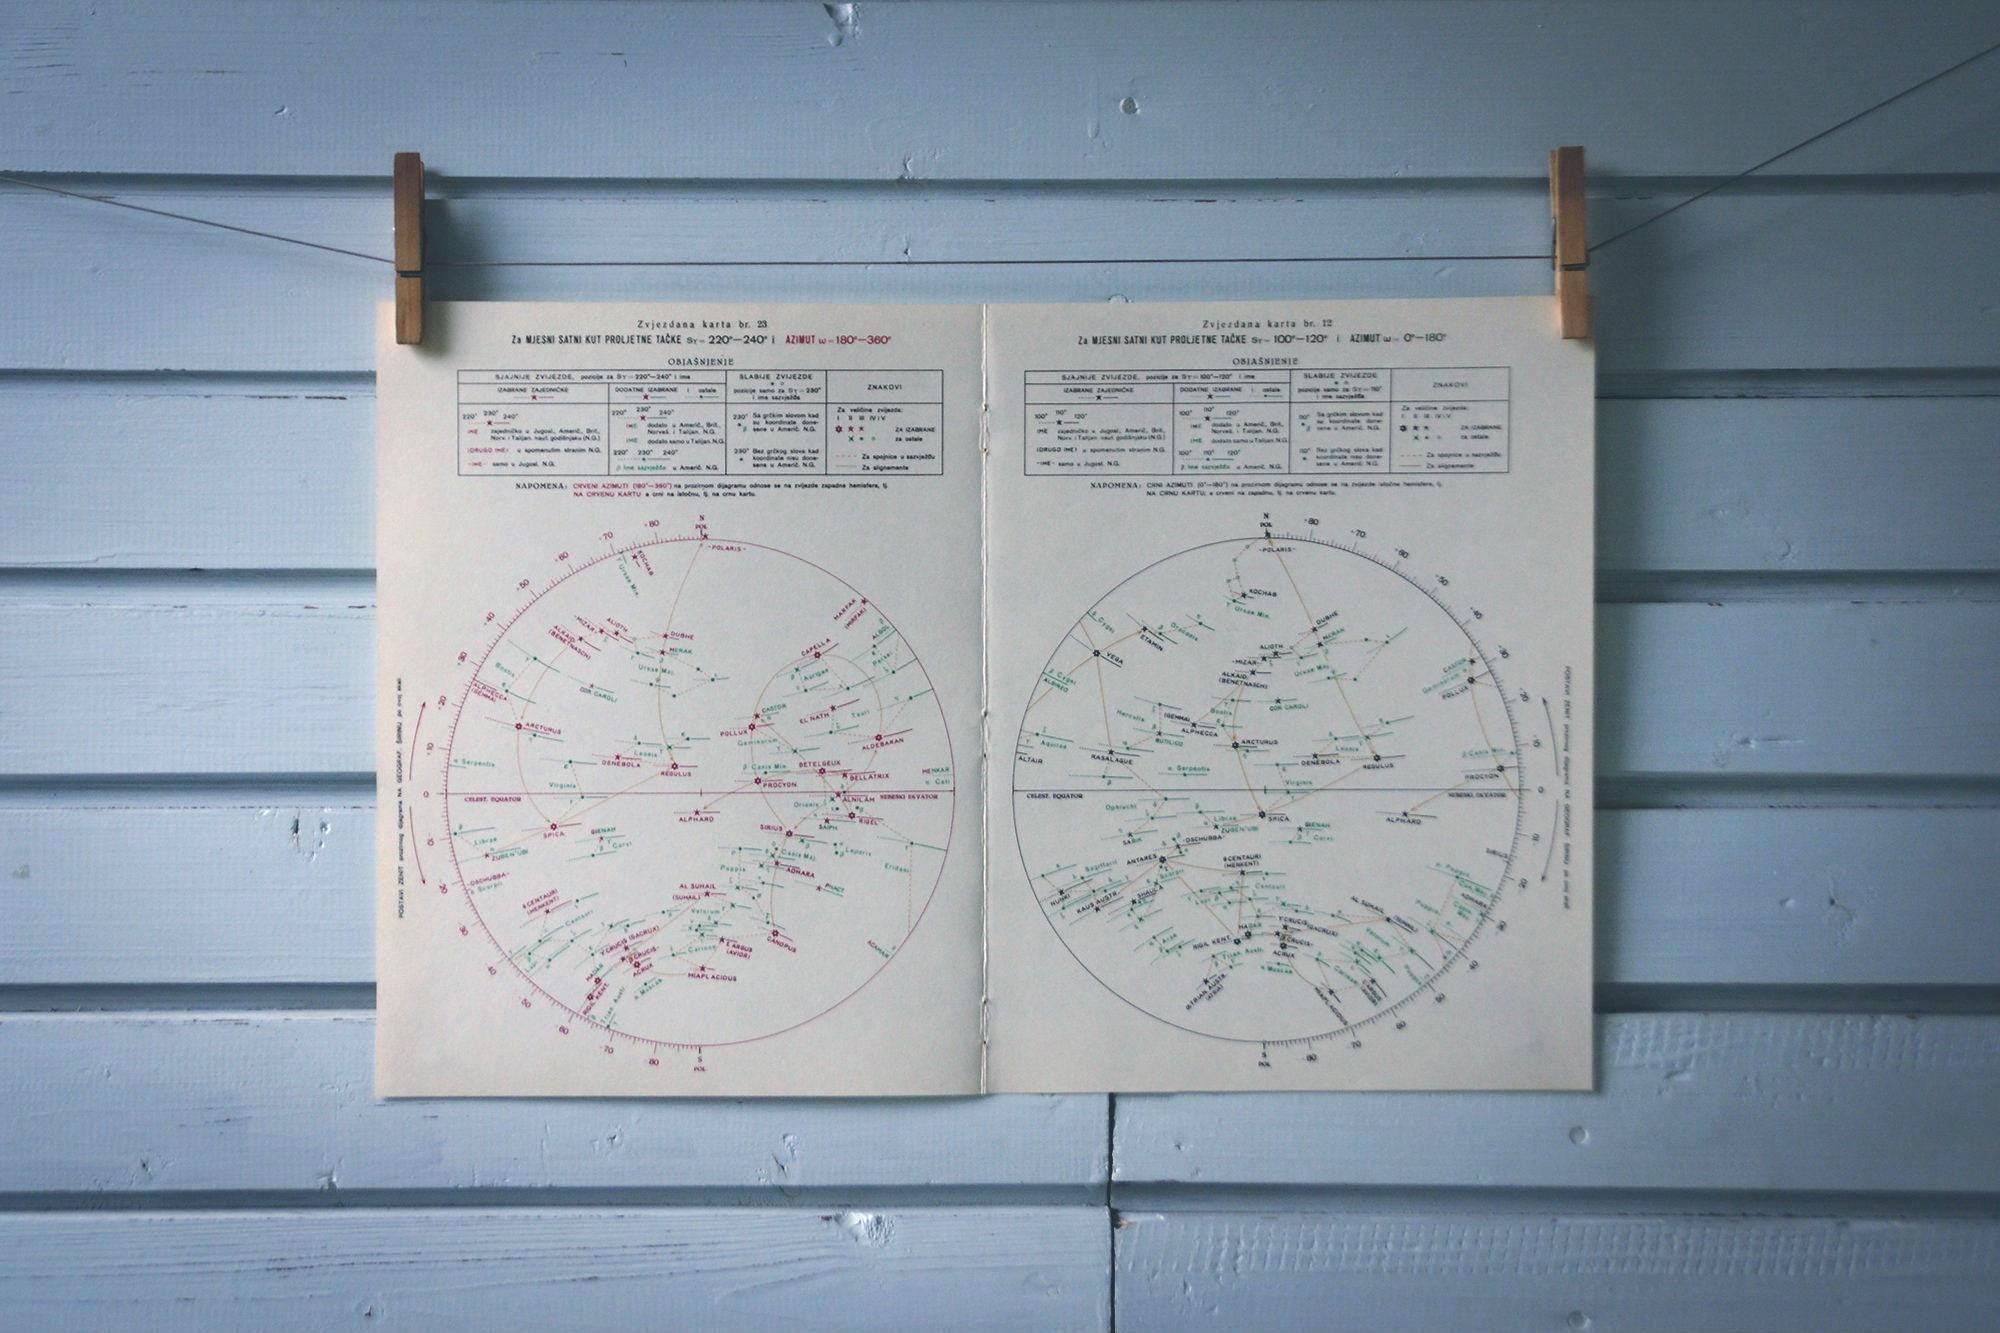 Zvjezdana karta br. 23
Za MJESNI SATNI KUT PROLJETNE TAČKE Sγ= 220°—240° i AZIMUT ω=180°—360°
OBJAŠNJENJE
SJAJNIJE ZVIJEZDE, pozicije za Sγ=220°—240° i ime
SLABIJE ZVIJEZDE
pozicije samo za Sγ=230°
i ime sazvježđa
ZNAKOVI
IZABRANE ZAJEDNIČKE
DODATNE IZABRANE i ostale
220° 230° 240°
IME zajedničko u Jugosl., Americ., Brit.,
Norv. i Talijan. naut. godišnjaku (N.G.)
(DRUGO IME) u spomenutim stranim N.G.
-IME- samo u Jugosl. N.G.
220° 230° 240°
IME dodato u Americ., Brit.,
Norveš. i Talijan. N.G.
IME dodato samo u Talijan. N.G.
220° 230° 240°
β Ime sazvježđa u Americ. N.G.
230° Sa grčkim slovom kad
su koordinate done-
sene u Americ. N.G.
230° Bez grčkog slova kad
koordinate nisu done-
sene u Americ. N.G.
Za veličine zvijezda:
I II III IV i V
ZA IZABRANE
za ostale
Za spojnice u sazvježđu
Za alignemente
NAPOMENA: CRVENI AZIMUTI (180°—360°) na prozirnom dijagramu odnose se na zvijezde zapadne hemisfere, tj.
NA CRVENU KARTU a crni na istočnu, tj. na crnu kartu.
N
POL
-POLARIS-
KOCHAB
Ursae Min.
MARFAK
(MIRFAK)
ALGOL
Persei
CAPELLA
Aurigae
DUBHE
MERAK
Ursae Maj.
ALIOTH
-MIZAR-
ALKAID
(BENETNASCH)
Bootis
COR CAROLI
ALPHECCA
(GEMMA)
ARCTURUS
CASTOR
POLLUX
Geminorum
EL NATH
Tauri
ALDEBARAN
DENEBOLA
Leonis
REGULUS
α Serpentis
Virginis
β Canis Min.
PROCYON
BETELGEUX
BELLATRIX
MENKAR
α Ceti
Orionis
ALNILAM
RIGEL
SAIPH
CELEST. EQUATOR
NEBESKI EKVATOR
ALPHARD
SPICA
SIRIUS
GIENAH
Corvi
Librae
ZUBEN'UBI
-DSCHUBBA-
Scorpii
Canis Maj.
Leporis
Eridani
ADHARA
PHACT
Puppis
AL SUHAIL
(SUHAIL)
Velorum
θ CENTAURI
(MENKENT)
Centauri
γ CRUCIS (GACRUX)
β CRUCIS-
ACRUX
HADAR
RIGIL KENT.
Carinae
ε ARGUS
(AVIOR)
CANOPUS
ACAMAR
MIAPLACIDUS
α Muscae
Trian. Austr.
S
POL
POSTAVI ZENIT prozirnog dijagrama NA GEOGRAF. ŠIRINU po ovoj skali
Zvjezdana karta br. 12
Za MJESNI SATNI KUT PROLJETNE TAČKE Sγ= 100°—120° i AZIMUT ω= 0°—180°
OBJAŠNJENJE
SJAJNIJE ZVIJEZDE, pozicije za Sγ=100°—120° i ime
SLABIJE ZVIJEZDE
pozicije samo za Sγ=110°
i ime sazvježđa
ZNAKOVI
IZABRANE ZAJEDNIČKE
DODATNE IZABRANE i ostale
100° 110° 120°
IME zajedničko u Jugosl., Americ., Brit.,
Norv. i Talijan. naut. godišnjaku (N.G.)
(DRUGO IME) u spomenutim stranim N.G.
-IME- samo u Jugosl. N.G.
100° 110° 120°
IME dodato u Americ., Brit.,
Norveš. i Talijan. N.G.
IME dodato samo u Talijan. N.G.
100° 110° 120°
β Ime sazvježđa u Americ. N.G.
110° Sa grčkim slovom kad
su koordinate done-
sene u Americ. N.G.
110° Bez grčkog slova kad
koordinate nisu done-
sene u Americ. N.G.
Za veličine zvijezda:
I II III IV i V
ZA IZABRANE
za ostale
Za spojnice u sazvježđu
Za alignemente
NAPOMENA: CRNI AZIMUTI (0°—180°) na prozirnom dijagramu odnose se na zvijezde istočne hemisfere, tj.
NA CRNU KARTU; a crveni na zapadnu, tj. na crvenu kartu.
N
POL
-POLARIS-
KOCHAB
Ursae Min.
Cygni
ETAMIN
Draconis
VEGA
DUBHE
MERAK
Ursae Maj.
ALIOTH
-MIZAR-
ALKAID
(BENETNASCH)
COR CAROLI
β Cygni
ALBIREO
CASTOR
Geminorum
POLLUX
Herculis
RUTILICO
(GEMMA)
ALPHECCA
Bootis
ARCTURUS
Aquilae
ALTAIR
RASALAGUE
α Serpentis
DENEBOLA
Leonis
REGULUS
Virginis
β Canis Min.
PROCYON
CELEST. EQUATOR
NEBESKI EKVATOR
Ophiuchi
SABIK
Librae
ZUBEN'UBI
SPICA
GIENAH
Corvi
ALPHARD
SIRIUS
-DSCHUBBA-
ANTARES
Scorpii
Sagittarii
NUNKI
KAUS AUSTR.
SHAULA
θ CENTAURI
(MENKENT)
Centauri
Lupi
Arae
HADAR
RIGIL KENT.
γ CRUCIS
(GACRUX)
β CRUCIS-
ACRUX
α Muscae
Trian. Austr.
α TRIAN. AUSTR.
AL SUHAIL
(SUHAIL)
Velorum
Puppis
ADHARA
Carinae
MIAPLACIDUS
S
POL